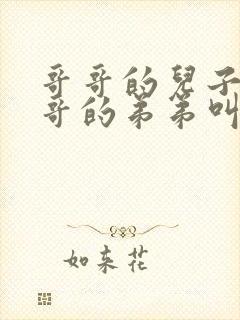 哥哥的兒子
哥的弟弟叫
如来花